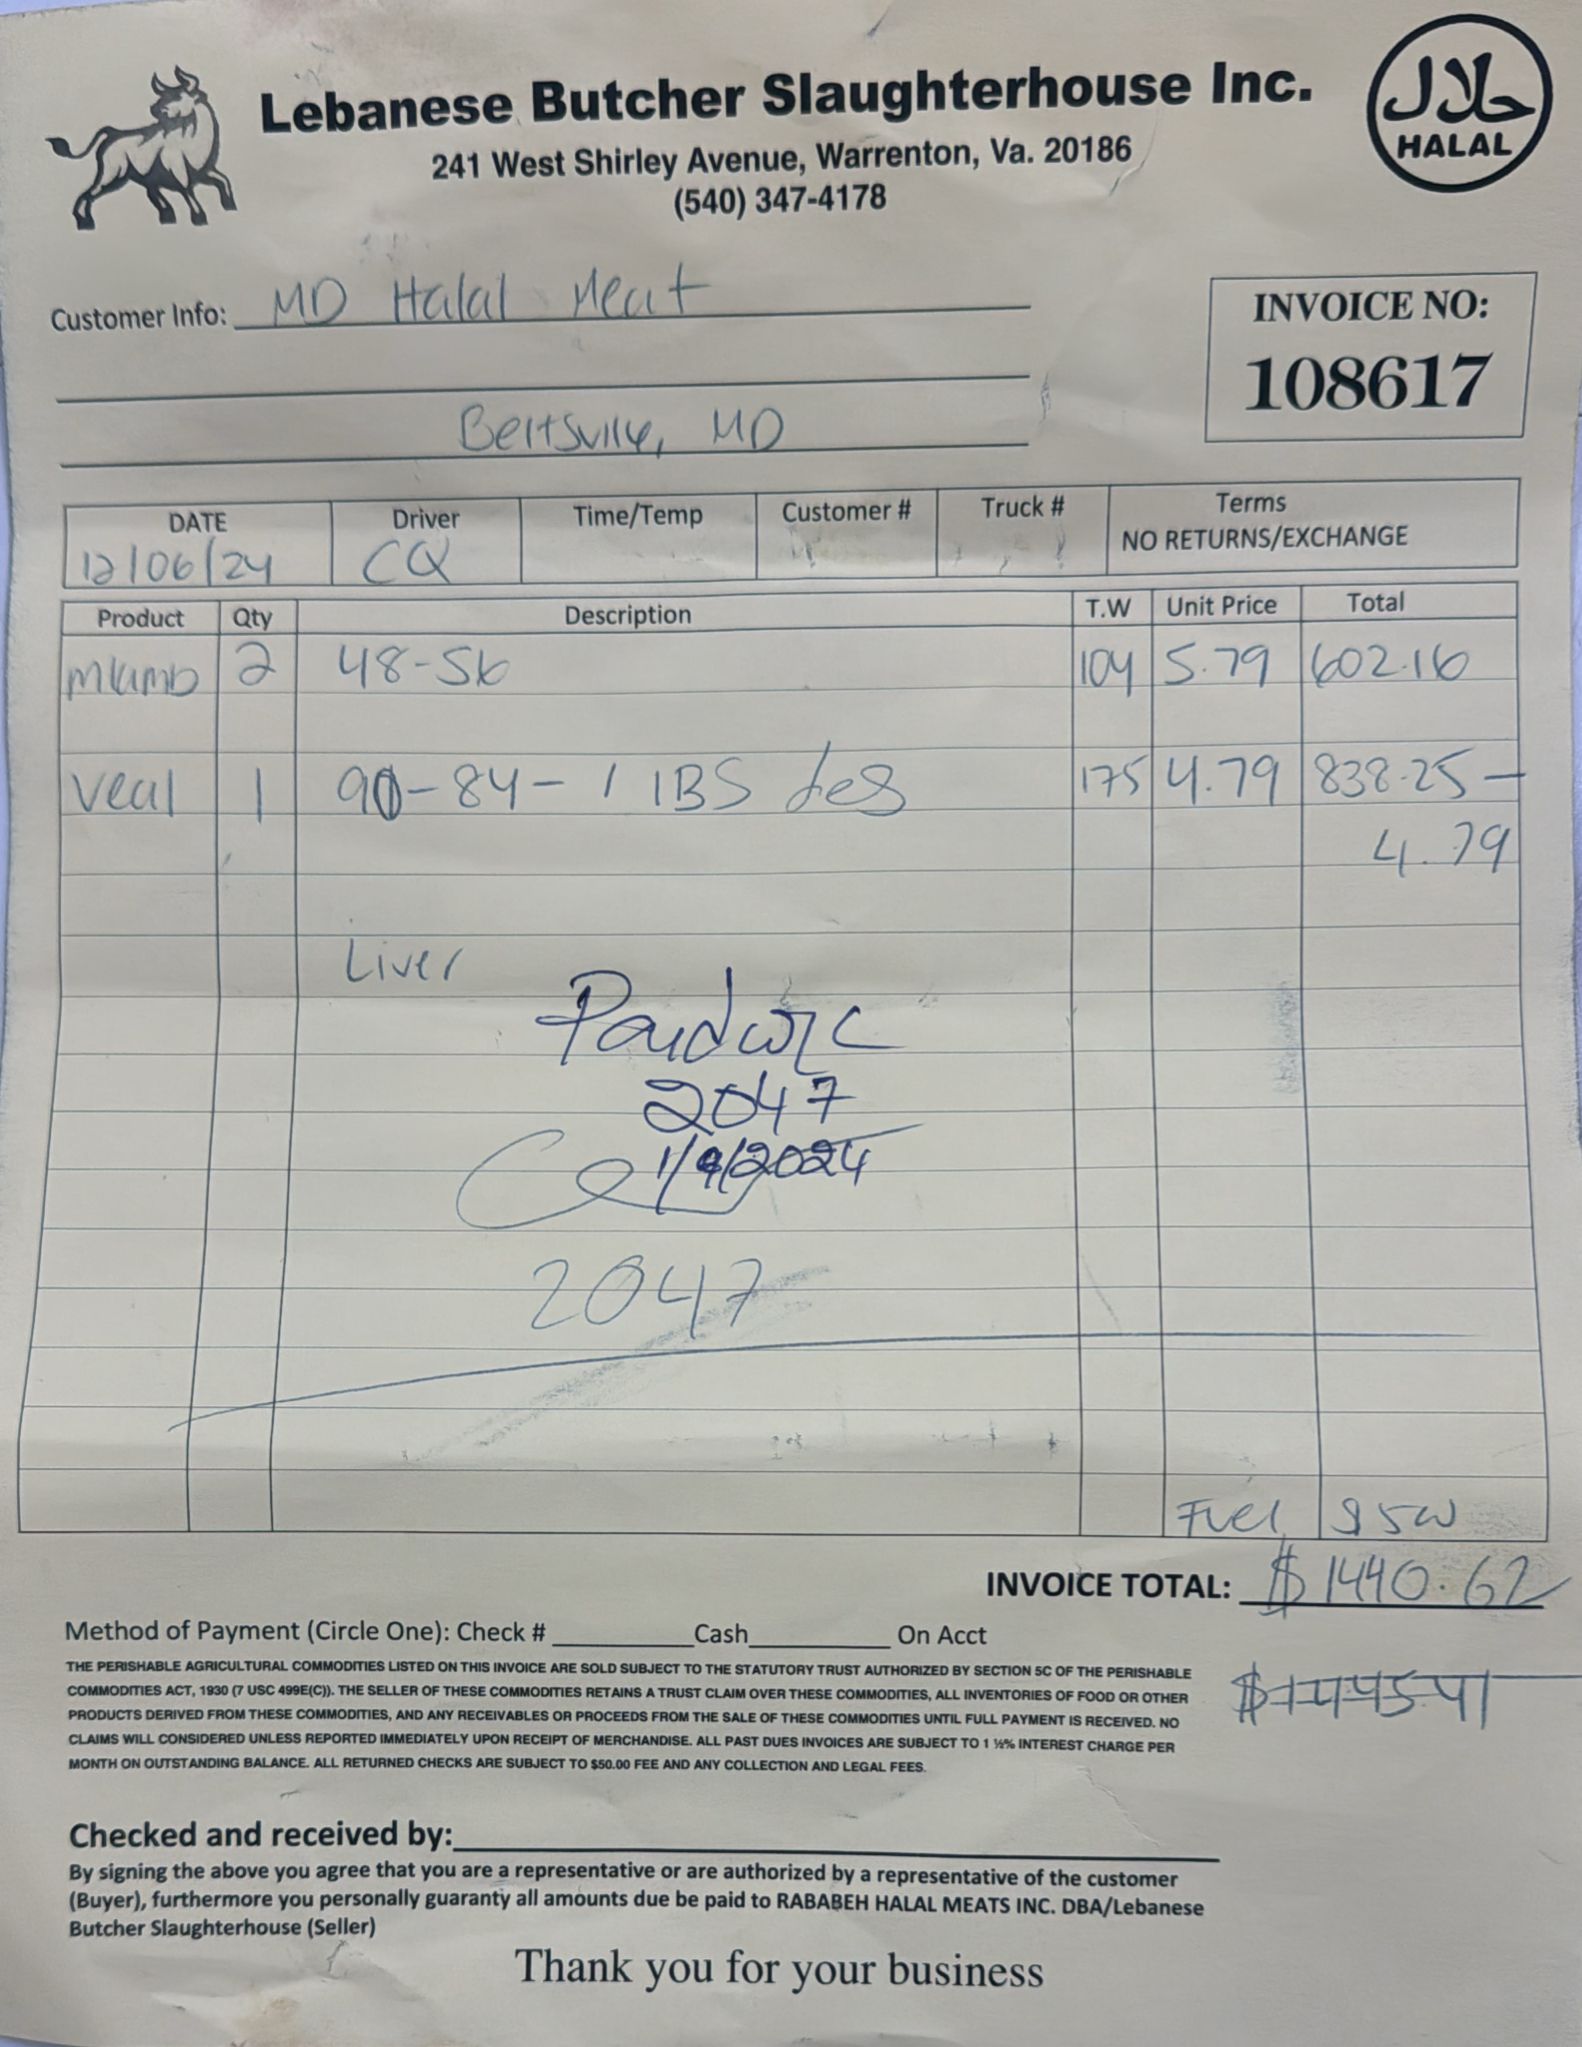 Lebanese Butcher Slaughterhouse Inc.
حلال
HALAL
241 West Shirley Avenue, Warrenton, Va. 20186
(540) 347-4178
Customer Info: MD Halal Meat
INVOICE NO:
108617
Beltsville, MD
DATE Driver Time/Temp Customer # Truck # Terms
12/06/24 CQ NO RETURNS/EXCHANGE
Product Qty Description T.W Unit Price Total
mlamb 2 48-56 104 5.79 602.16
Veal 1 90-84-1 lBS 175 4.79 838.25 -
4.79
Liver
Paid
2047
2047
Fuel $5
INVOICE TOTAL: $1440.62
Method of Payment (Circle One): Check # Cash On Acct
$1445.41
THE PERISHABLE AGRICULTURAL COMMODITIES LISTED ON THIS INVOICE ARE SOLD SUBJECT TO THE STATUTORY TRUST AUTHORIZED BY SECTION 5C OF THE PERISHABLE
COMMODITIES ACT, 1930 (7 USC 499E(C)). THE SELLER OF THESE COMMODITIES RETAINS A TRUST CLAIM OVER THESE COMMODITIES, ALL INVENTORIES OF FOOD OR OTHER
PRODUCTS DERIVED FROM THESE COMMODITIES, AND ANY RECEIVABLES OR PROCEEDS FROM THE SALE OF THESE COMMODITIES UNTIL FULL PAYMENT IS RECEIVED. NO
CLAIMS WILL CONSIDERED UNLESS REPORTED IMMEDIATELY UPON RECEIPT OF MERCHANDISE. ALL PAST DUES INVOICES ARE SUBJECT TO 1 ½% INTEREST CHARGE PER
MONTH ON OUTSTANDING BALANCE. ALL RETURNED CHECKS ARE SUBJECT TO $50.00 FEE AND ANY COLLECTION AND LEGAL FEES.
Checked and received by:
By signing the above you agree that you are a representative or are authorized by a representative of the customer
(Buyer), furthermore you personally guaranty all amounts due be paid to RABABEH HALAL MEATS INC. DBA/Lebanese
Butcher Slaughterhouse (Seller)
Thank you for your business